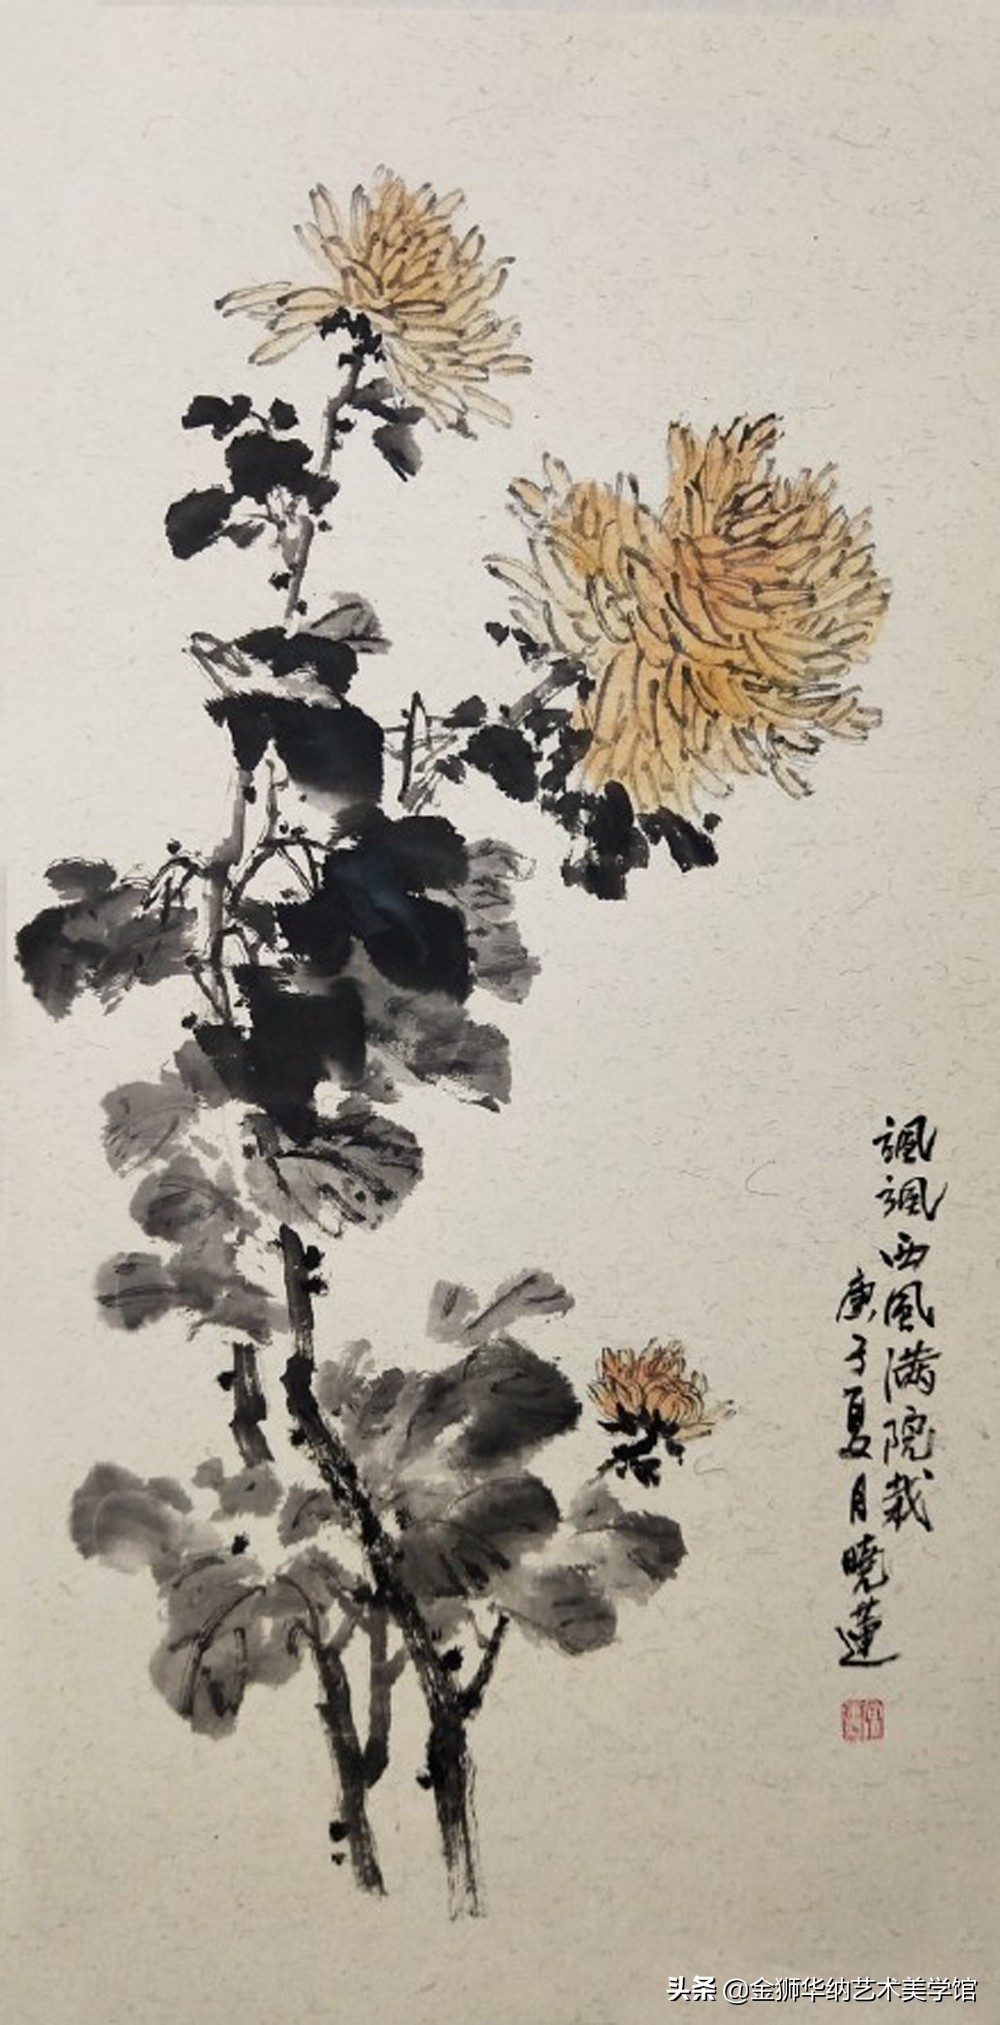 颯颯西風满院栽
庚子夏月曉蓮
头条 @金狮华纳艺术美学馆